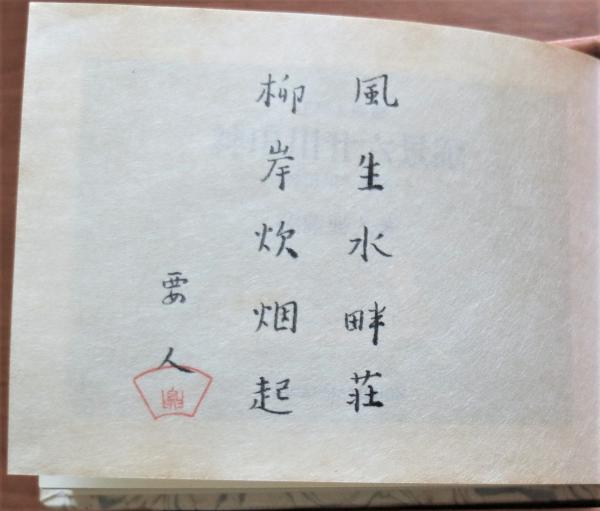 風生水畔荘
柳岸炊烟起
要人